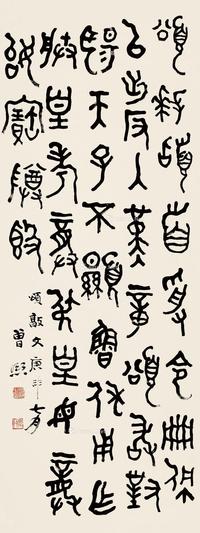 頌拜稽首受令冊佩
以出反入堇章頌敢對
揚天子不顯魯休用作
朕皇考龔叔皇母龔
姒寶尊𣪘
頌敦文庚午七月
曾熙